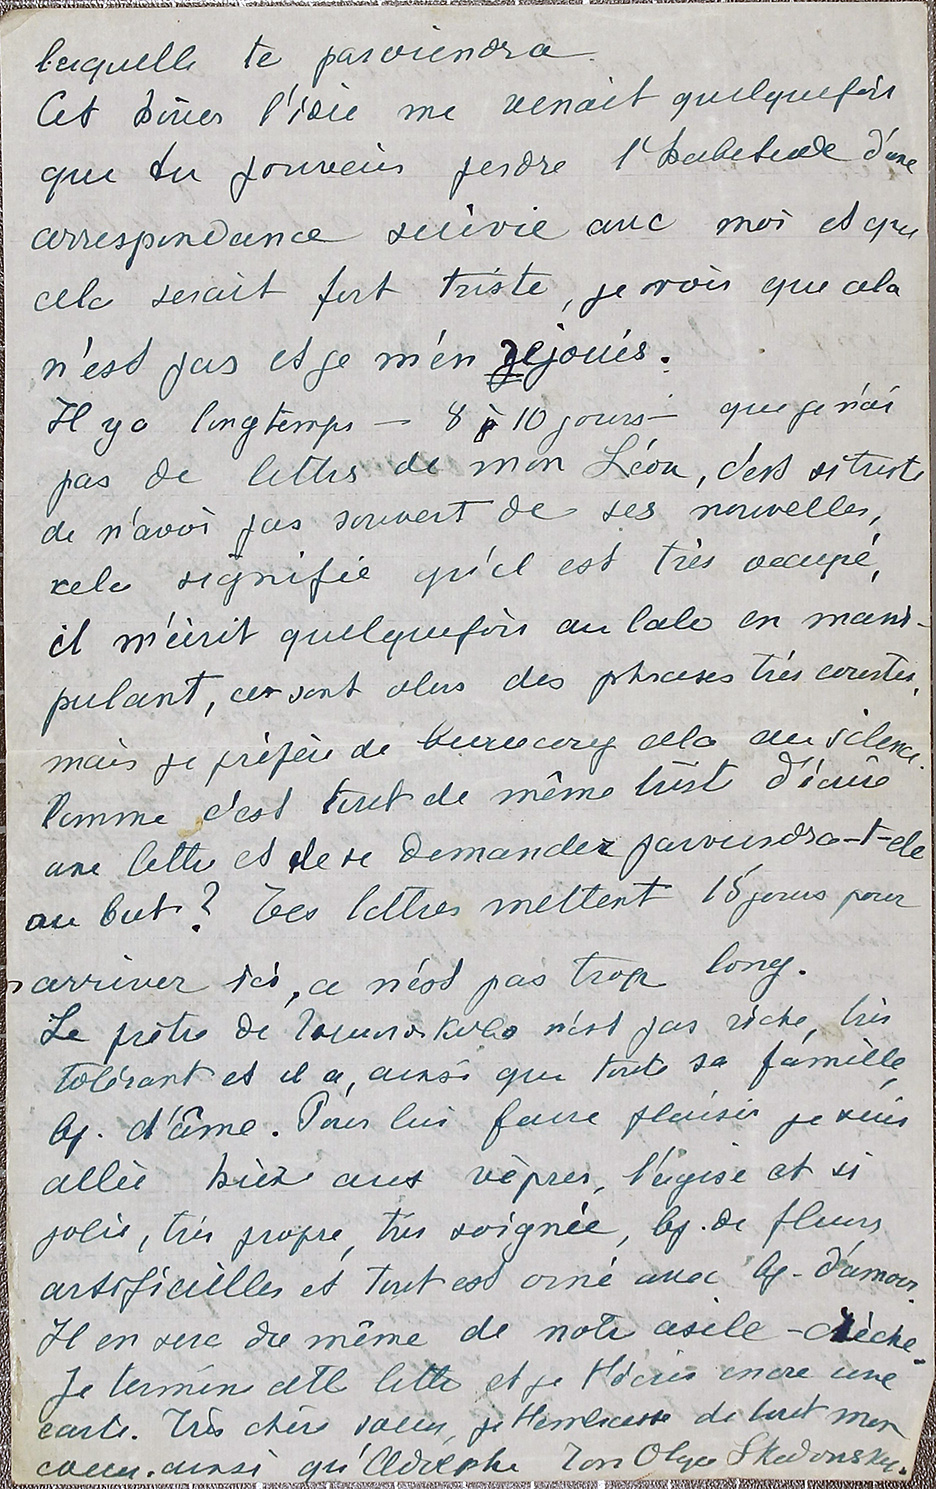 laquelle te parviendra.
Cet hiver l'idée me venait quelquefois
que tu pouvais perdre l'habitude d'une
correspondance suivie avec moi et que
cela serait fort triste, je vois que cela
n'est pas et je m'en rejouis.
Il y a longtemps — 8 à 10 jours — que je n'ai
pas de lettres de mon Léon, c'est si triste
de n'avoi pas souvent de ses nouvelles,
cela signifie qu'il est très occupé,
il m'écrit quelquefois au labo en mani-
pulant, ce sont alors des phrases très courtes,
mais je préfère de beaucoup cela au silence.
Comme c'est tout de même triste d'écrire
une lettre et de se demander parviendra-t-elle
au but? Tes lettres mettent 15 jours pour
arriver ici, ce n'est pas trop long.
Le prêtre de n'est pas riche, très
tolérant et il a, ainsi que toute sa famille,
bp. d'âme. Pour lui faire plaisir je suis
allée hier aux vèpres, l'égise et si
jolie, très propre, très soignée, bp. de fleurs
artificielles et tout est orné avec bp. d'amour.
Il en sera de même de notre asile-crèche.
Je termine cette lettre et je t'écris encore une
carte. Très chère soeur, je t'embrasse de tout mon
coeur. ainsi qu'Adolphe Ton Olga Skadovsky.